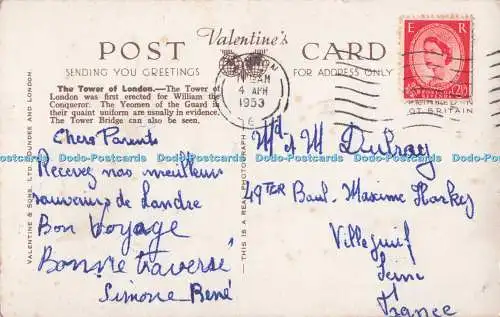 Valentine's
POST CARD
SENDING YOU GREETINGS
FOR ADDRESS ONLY
The Tower of London.—The Tower of
London was first erected for William the
Conqueror. The Yeomen of the Guard in
their quaint uniform are usually in evidence.
The Tower Bridge can also be seen.
VALENTINE & SONS, LTD., DUNDEE AND LONDON.
—THIS IS A REAL PHOTOGRAPH—
AM
4 APR
1953
E R
2½
GT BRITAIN
Chers Parents
Recevez nos meilleurs
souvenirs de Londre
Bon Voyage
Bonne traversé
Simone René
Md et M Dubray
49TER Boul. Maxime
Villejuif
Seine
France
Dodo-Postcards Dodo-Postcards Dodo-Postcards Dodo-Postcards Dodo-Postcards Dodo-Postcards